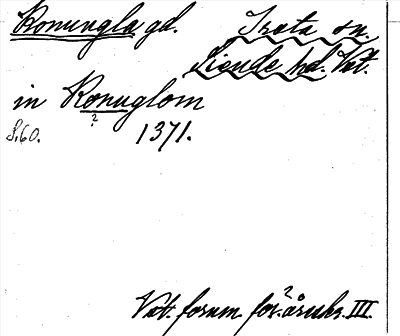 Konungla gd. Irsta sn.
Siende hd. Vst.
in Konuglom
?
S. 60. 1371.
Vst. fornm. för:s årsskr. III.